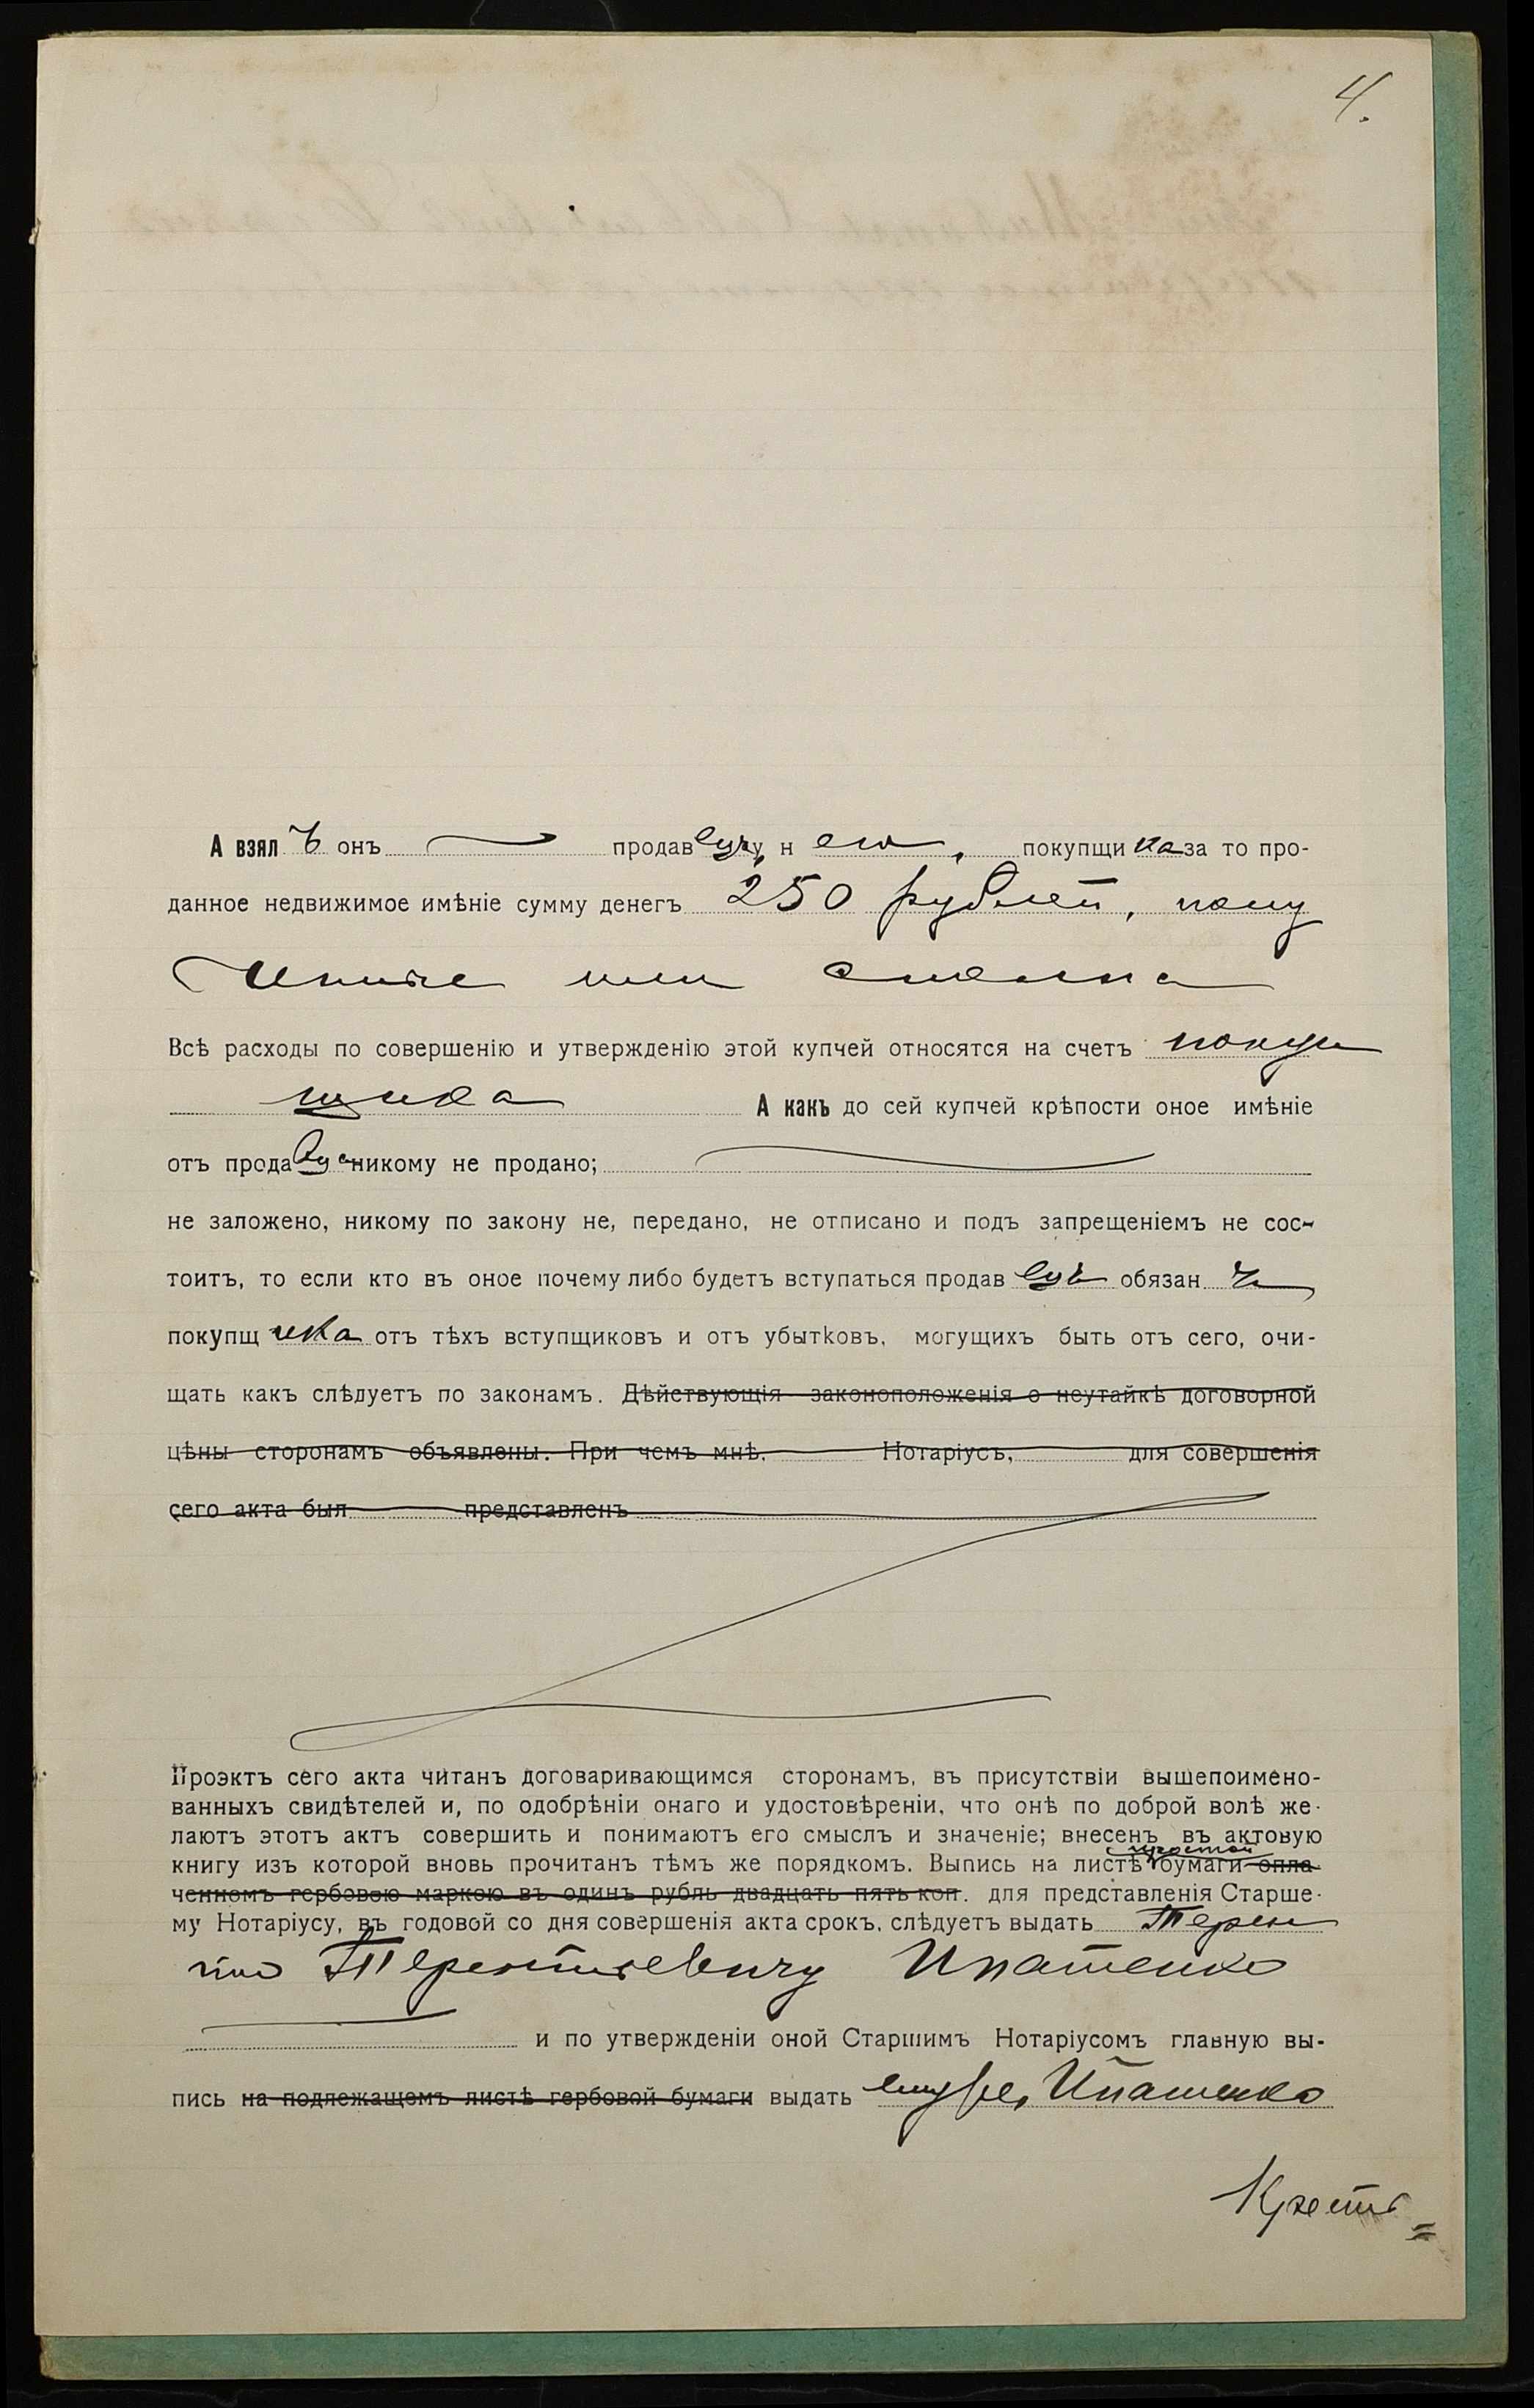 4.
А взялъ онъ продавецъ, н его, покупщика за то про-
данное недвижимое имѣніе сумму денегъ 250 рублей,
Всѣ расходы по совершенію и утвержденію этой купчей относятся на счетъ покуп
щика А какъ до сей купчей крѣпости оное имѣніе
отъ продавца никому не продано;
не заложено, никому по закону не, передано, не отписано и подъ запрещеніемъ не сос-
тоитъ, то если кто въ оное почему либо будетъ вступаться продавецъ обязанъ
покупщика отъ тѣхъ вступщиковъ и отъ убытковъ, могущихъ быть отъ сего, очи-
щать какъ слѣдуетъ по законамъ. Дѣйствующія законоположенія о неутайкѣ договорной
цѣны сторонамъ объявлены. При чемъ мнѣ, Нотаріусъ, для совершенія
сего акта был представленъ
Проэктъ сего акта читанъ договаривающимся сторонамъ, въ присутствіи вышепоимено-
ванныхъ свидѣтелей и, по одобрѣніи онаго и удостовѣреніи, что онѣ по доброй волѣ же-
лаютъ этотъ актъ совершить и понимаютъ его смыслъ и значеніе; внесенъ въ актовую
простой
книгу изъ которой вновь прочитанъ тѣмъ же порядкомъ. Выпись на листѣ бумаги опла-
ченномъ гербовою маркою въ одинъ рубль двадцать пять коп. для представленія Старше-
му Нотаріусу, въ годовой со дня совершенія акта срокъ, слѣдуетъ выдать Терен
тію Терентьевичу Ипатенко
и по утвержденіи оной Старшимъ Нотаріусомъ главную вы-
пись на подлежащемъ листѣ гербовой бумаги выдать ему же, Ипатенко
Кресть
=